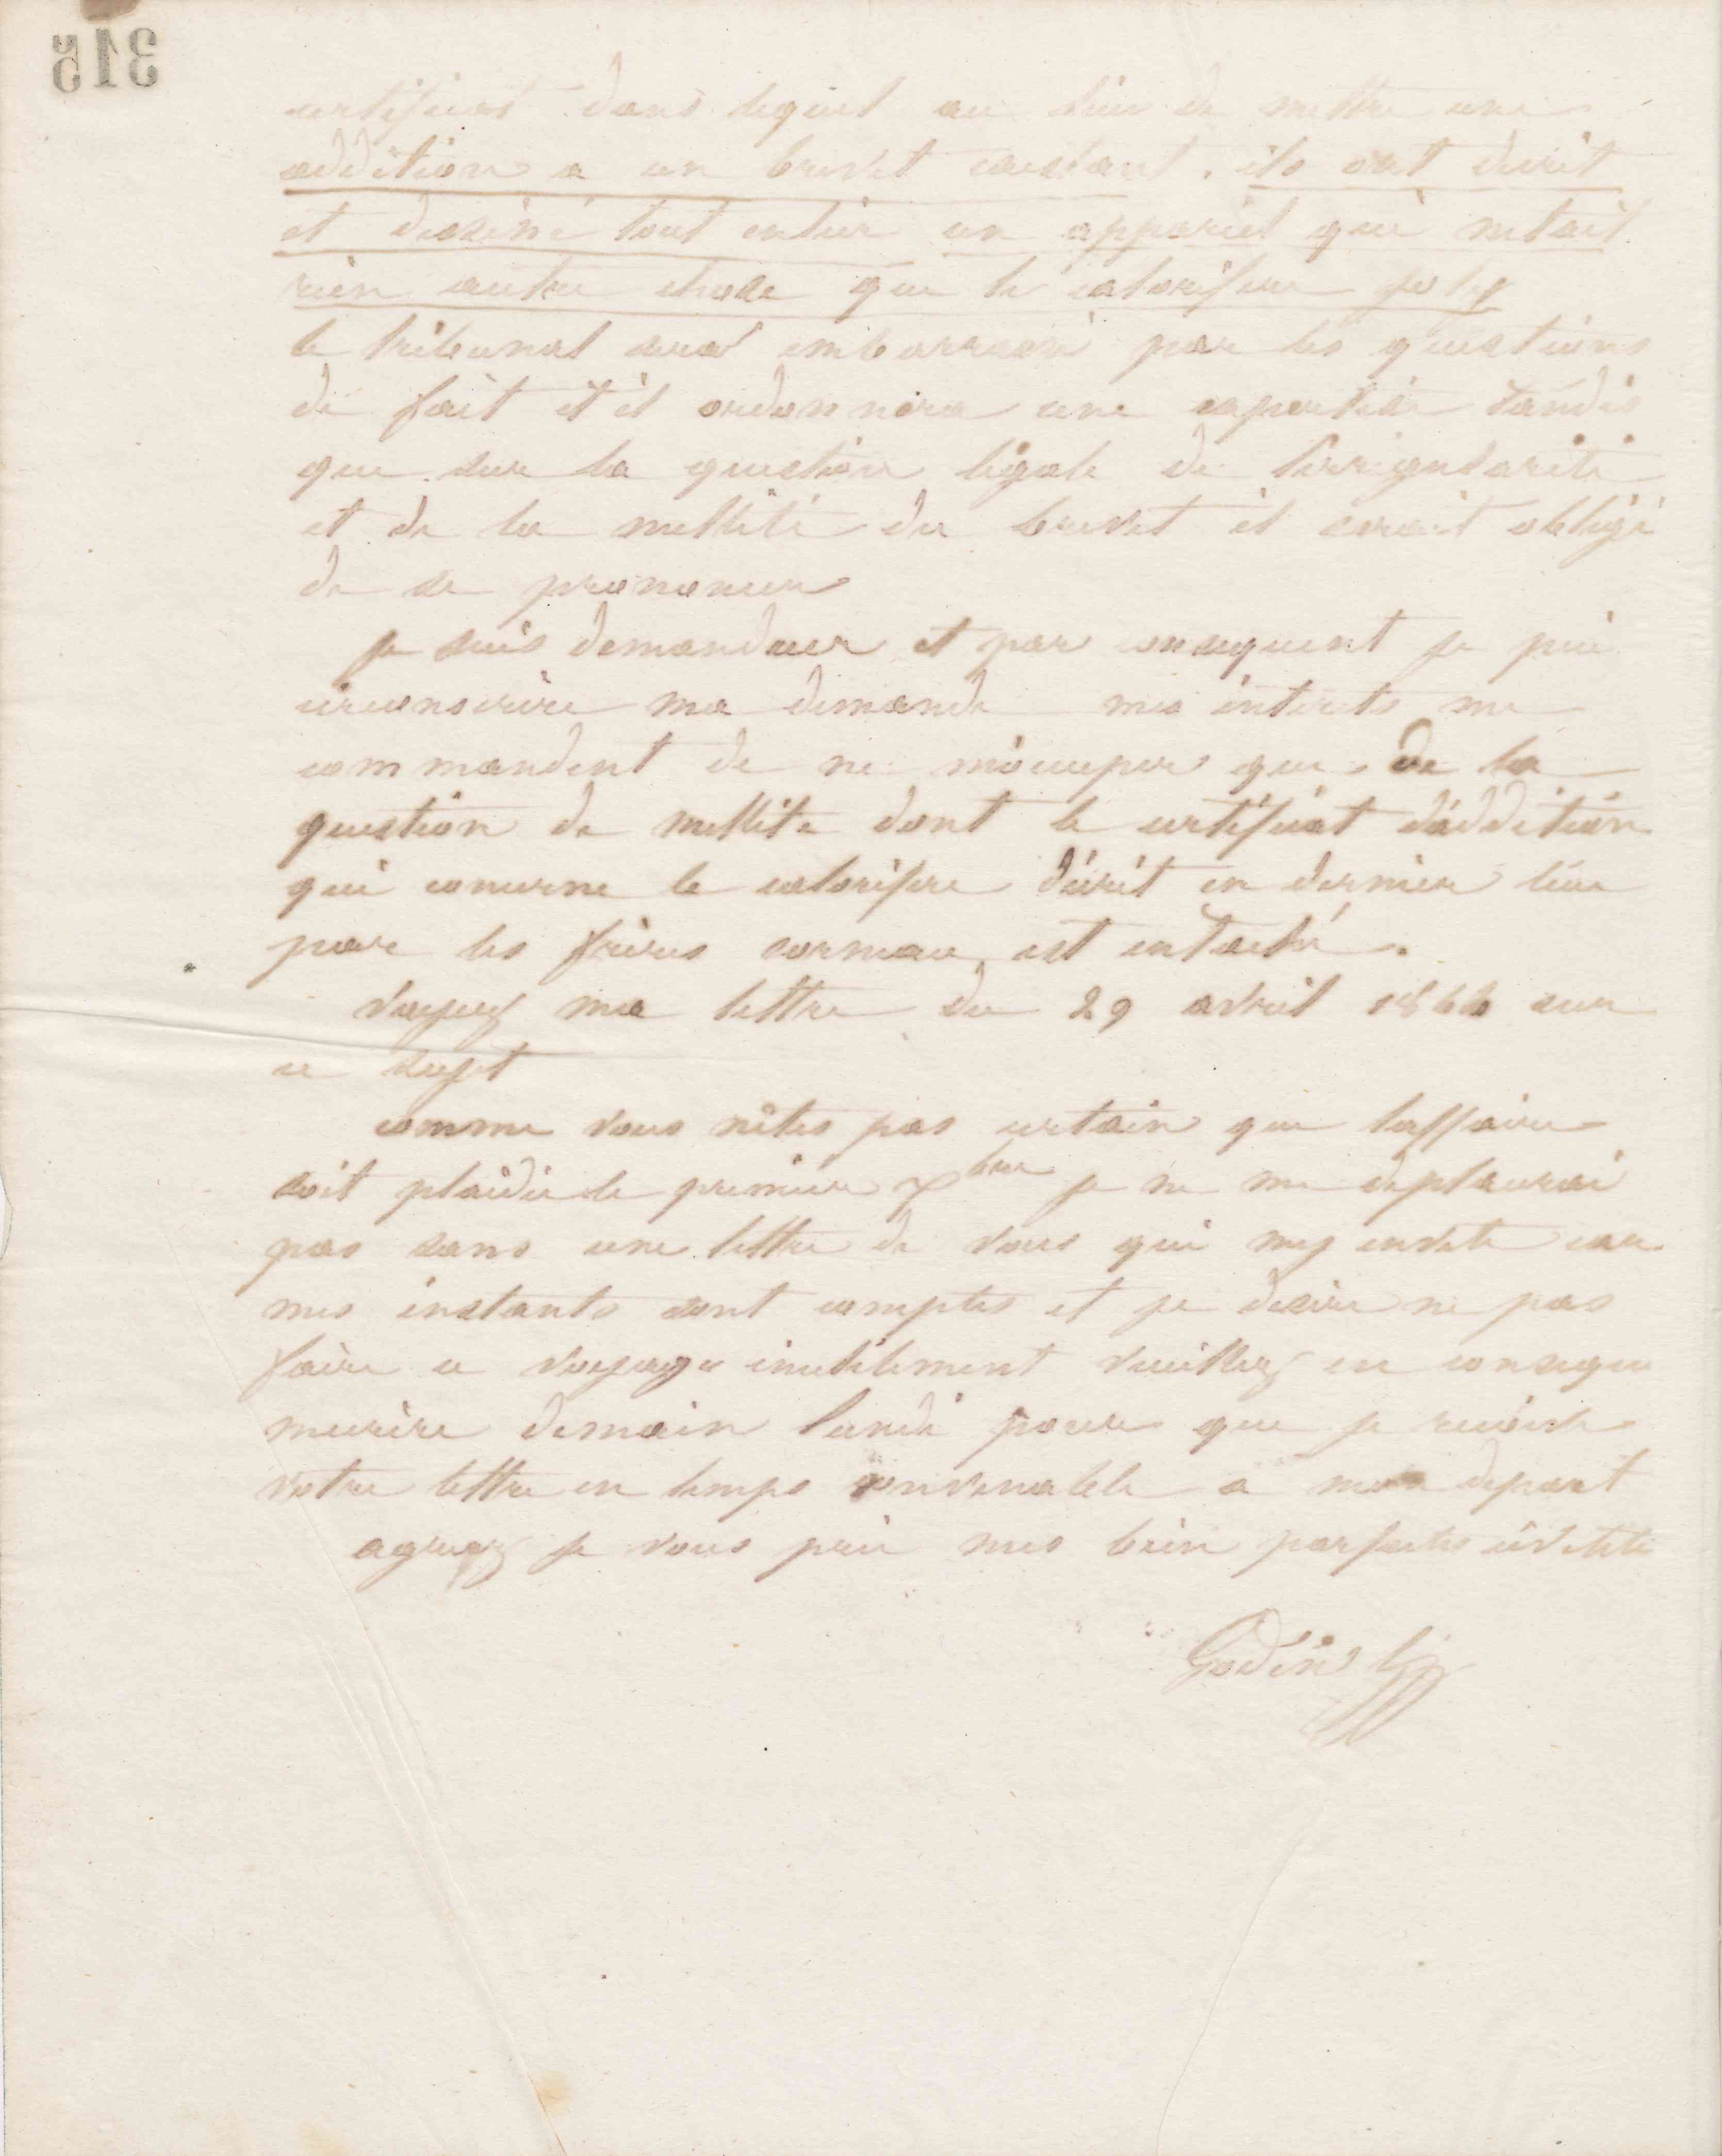 315
certificat dans lequel au lieu de mettre une
addition a un brevet existant. ils ont decrit
et dessiné tout entier un appareil qui netait
rien autre chose que le calorifere joly
le tribunal sera embarrassé par les questions
de fait et il ordonnera une expertise tandis
que sur la question légale de lirrégularité
et de la nullité du brevet il serait obligé
de se prononcer
je suis demandeur et par consequent je puis
circonscrire ma demande mes interets me
commandent de ne m'occuper que de la
question de nullité dont le certificat d'addition
qui concerne le calorifere décrit en dernier lieu
par les frères corneau est entaché.
voyez ma lettre du 29 avril 1862 sur
ce sujet
comme vous nêtes pas certain que laffaire
soit plaidée le premier Xbre je ne me deplacerai
pas sans une lettre de vous qui my invite car
mes instants sont comptés et je desire ne pas
faire ce voyage inutilement veuillez en conseque
mecrire demain lundi pour que je recoive
votre lettre en temps convenable a mon depart
agreez je vous prie mes bien parfaites civilités
Godin